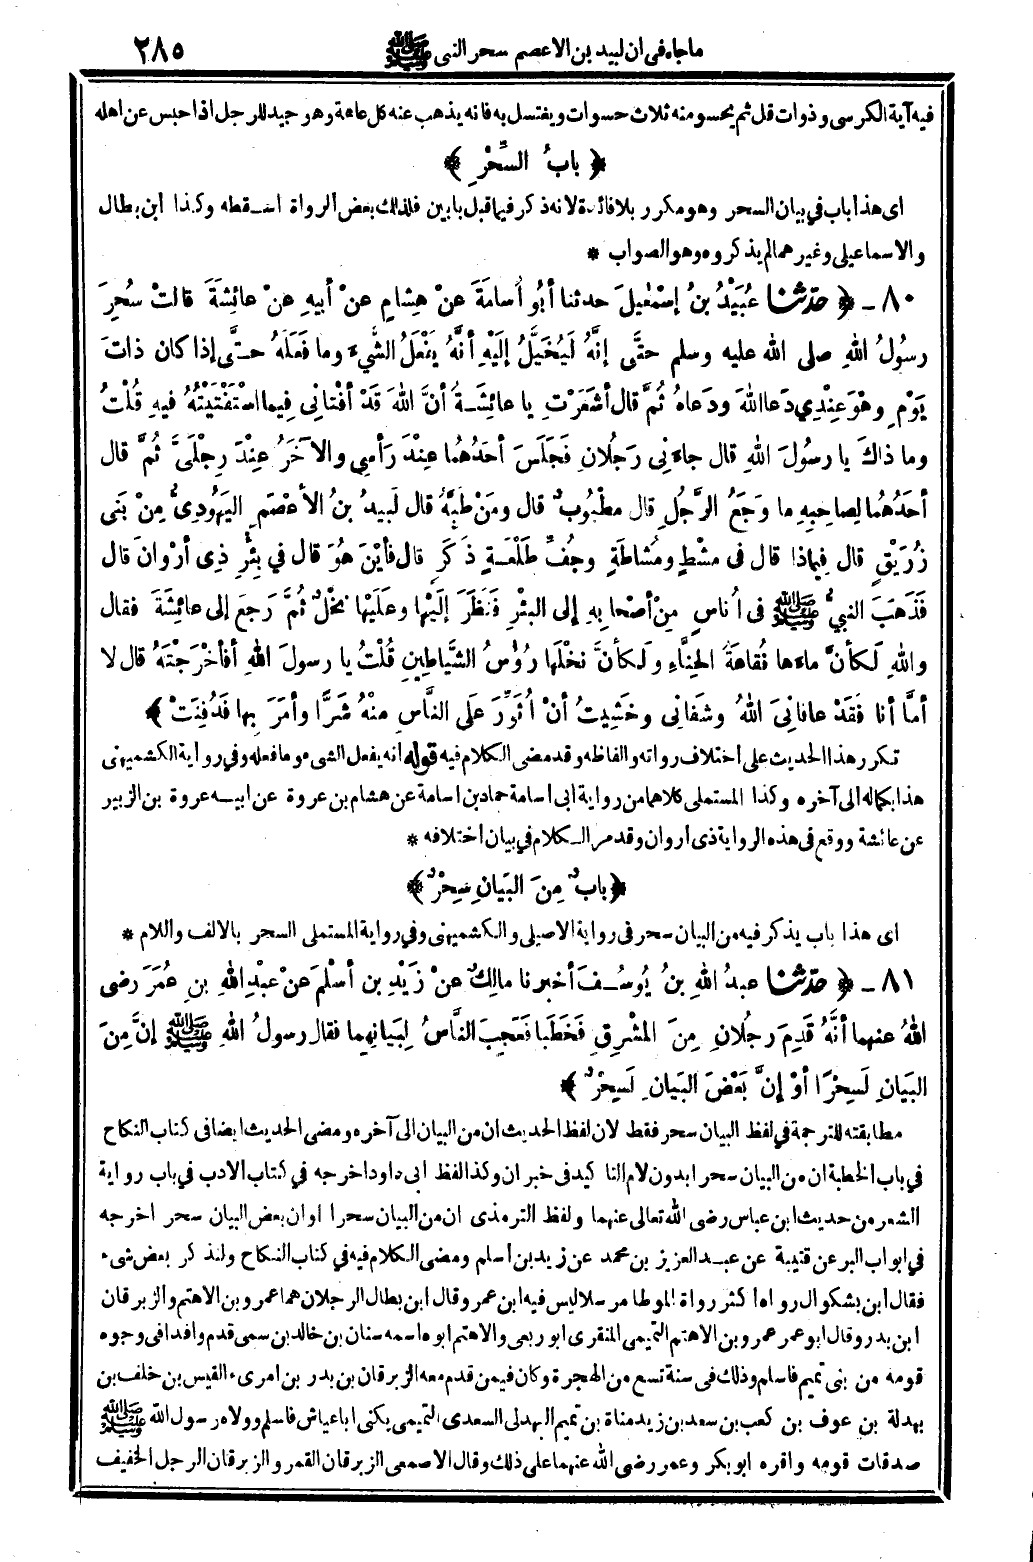 ماجاء في ان لبيد بن الاعصم سحر النبي ﷺ ٢٨٥
فيه آية الكرسي وذوات قل ثم يحسو منه ثلاث حسوات ويغتسل به فانه يذهب عنه كل عاهة وهو جيد للرجل اذا حبس عن اهله
﴿ بابُ السِّحْرِ ﴾
اى هذا باب في بيان السحر وهو مكرر بلا فائدة لانه ذكر فيما قبل بابين فلذلك بعض الرواة اسقطه وكذا ابن بطال
والاسماعيلى وغيرهما لم يذكروه وهو الصواب *
٨٠ - ﴿ حدثنا عُبَيْدُ بنُ إسْمٰعِيلَ حدثنا أبُو أُسامَةَ عنْ هِشامٍ عنْ أبِيهِ عنْ عائِشَةَ قالتْ سُحِرَ
رسُولُ اللهِ صلى الله عليه وسلم حتَّى إنَّهُ لَيُخَيَّلُ إلَيْهِ أنَّهُ يَفْعَلُ الشَّىْءَ وما فَعَلَهُ حتَّى إذا كان ذاتَ
يَوْمٍ وهْوَ عِنْدِي دَعا اللهَ ودَعاهُ ثُمَّ قال أشَعَرْتِ يا عائِشَةُ أنَّ اللهَ قَدْ أفْتانِى فِيما اسْتَفْتَيْتُهُ فِيهِ قُلْتُ
وما ذاكَ يا رسُولَ اللهِ قال جاءَنِى رَجُلانِ فَجَلَسَ أحَدُهُما عِنْدَ رَأْسِي والآخَرُ عِنْدَ رِجْلَىَّ ثُمَّ قال
أحَدُهُما لِصاحِبِهِ ما وَجَعُ الرَّجُلِ قال مطْبُوبٌ قال ومَنْ طَبَّهُ قال لَبِيدُ بنُ الأعْصَمِ اليَهُودِىُّ مِنْ بَنى
زُرَيْقٍ قال فِيماذا قال فى مشْطٍ ومُشاطَةٍ وجُفِّ طَلْعَةٍ ذَكَرٍ قال فأيْنَ هُوَ قال في بِئْرِ ذِى أرْوانَ قال
فَذَهَبَ النبيُّ ﷺ فى أُناسٍ مِنْ أصْحابِهِ إلى البئْرِ فَنَظَرَ إلَيْها وعلَيْها نَخْلٌ ثُمَّ رَجَعَ إلى عائِشَةَ فقال
واللهِ لَكأنَّ ماءَها نُقاعَةُ الحِنَّاءِ ولَكأنَّ نَخْلَها رُؤُسُ الشَّياطِينِ قُلْتُ يا رسولَ اللهِ أفأخْرَجْتَهُ قال لا
أمَّا أنا فَقَدْ عافانِىَ اللهُ وشَفانِى وخَشِيتُ أنْ أُثَوِّرَ علَى النَّاسِ مِنْهُ شَرًّا وأمَرَ بِها فَدُفِنَتْ ﴾
تكرر هذا الحديث على اختلاف رواته والفاظه وقد مضى الكلام فيه قوله انه يفعل الشىء وما فعله وفي رواية الكشميهنى
هذا بكماله الى آخره وكذا المستملى كلاهما من رواية ابى أسامة حماد بن اسامة عن هشام بن عروة عن ابيه عروة بن الزبير
عن عائشة ووقع فى هذه الرواية ذى أروان وقد مر الكلام في بيان اختلافه *
﴿ بابٌ مِنَ البَيانِ سِحْرٌ ﴾
اى هذا باب يذكر فيه من البيان سحر فى رواية الاصيلى والكشميهنى وفي رواية المستملى السحر بالالف واللام *
٨١ - ﴿ حدثنا عبدُ اللهِ بنُ يُوسُفَ أخبرنا مالِكٌ عنْ زَيْدِ بنِ أسْلَمَ عنْ عبْدِ اللهِ بنِ عُمَرَ رضى
اللهُ عنهما أنَّهُ قَدِمَ رجُلانِ مِنَ المشْرِقِ فَخَطَبا فَعَجِبَ النَّاسُ لِبَيانِهِما فقال رسولُ اللهِ ﷺ إنَّ مِنَ
البَيانِ لَسِحْرًا أوْ إنَّ بَعْضَ البَيانِ لَسِحْرٌ ﴾
مطابقته للترجمة في لفظ البيان سحر فقط لان لفظ الحديث ان من البيان الى آخره ومضى الحديث ايضا فى كتاب النكاح
في باب الخطبة ان من البيان سحرا بدون لام التاكيد فى خبر ان وكذا لفظ ابى داود اخرجه في كتاب الادب في باب رواية
الشعر من حديث ابن عباس رضى الله تعالى عنهما ولفظ الترمذى ان من البيان سحرا او ان بعض البيان سحر اخرجه
في ابواب البر عن قتيبة عن عبد العزيز بن محمد عن زيد بن أسلم ومضى الكلام فيه في كتاب النكاح ولنذكر بعض شىء
فقال ابن بشكوال رواه اكثر رواة الموطا مرسلا ليس فيه ابن عمر وقال ابن بطال الرجلان هما عمرو بن الاهتم والزبرقان
ابن بدر وقال ابو عمر عمرو بن الاهتم التميمى المنقرى ابو ربعى والاهتم ابوه اسمه سنان بن خالد بن سمى قدم وافدا فى وجوه
قومه من بنى تميم فاسلم وذلك فى سنة تسع من الهجرة وكان فيمن قدم معه الزبرقان بن بدر بن امرىء القيس بن خلف بن
بهدلة بن عوف بن كعب بن سعد بن زيد مناة بن تميم البهدلى السعدى التميمى يكنى ابا عياش فاسلم وولاه رسول الله ﷺ
صدقات قومه واقره ابو بكر وعمر رضى الله عنهما على ذلك وقال الاصمعى الزبرقان القمر والزبرقان الرجل الخفيف